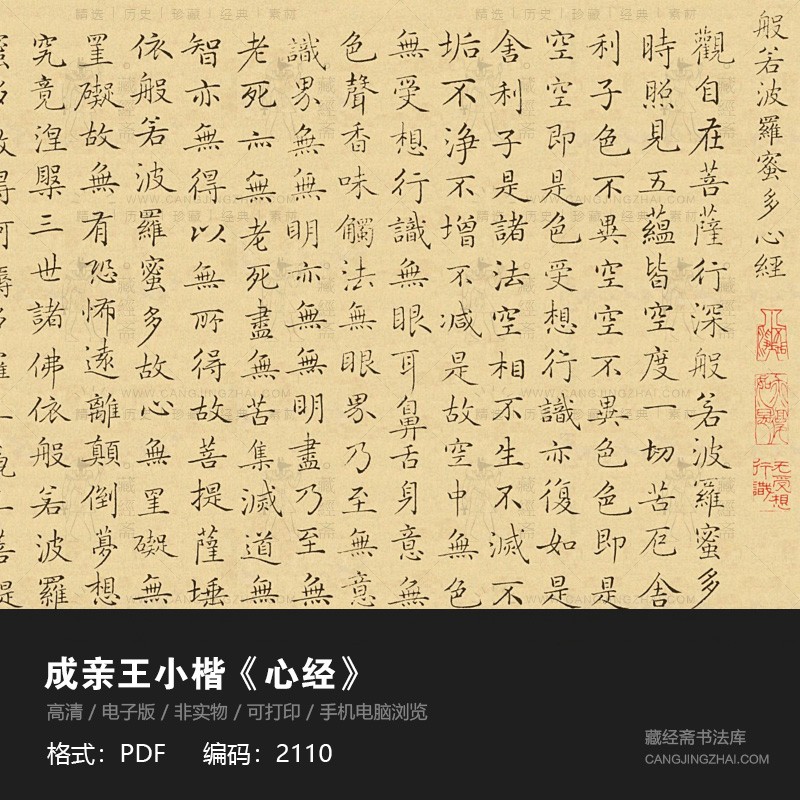 般若波羅蜜多心經
无受想
行識
觀自在菩薩行深般若波羅蜜多
時照見五蘊皆空度一切苦厄舍
利子色不異空空不異色色即是
空空即是色受想行識亦復如是
舍利子是諸法空相不生不滅不
垢不淨不增不减是故空中無色
無受想行識無眼耳鼻舌身意無
色聲香味觸法無眼界乃至無意
識界無無明亦無無明盡乃至無
老死亦無老死盡無苦集滅道無
智亦無得以無所得故菩提薩埵
依般若波羅蜜多故心無罣礙無
罣礙故無有恐怖遠離顛倒夢想
究竟涅槃三世諸佛依般若波羅
成亲王小楷《心经》
高清 / 电子版 / 非实物 / 可打印 / 手机电脑浏览
格式：PDF 编码：2110
藏经斋书法库
CANGJINGZHAI.COM